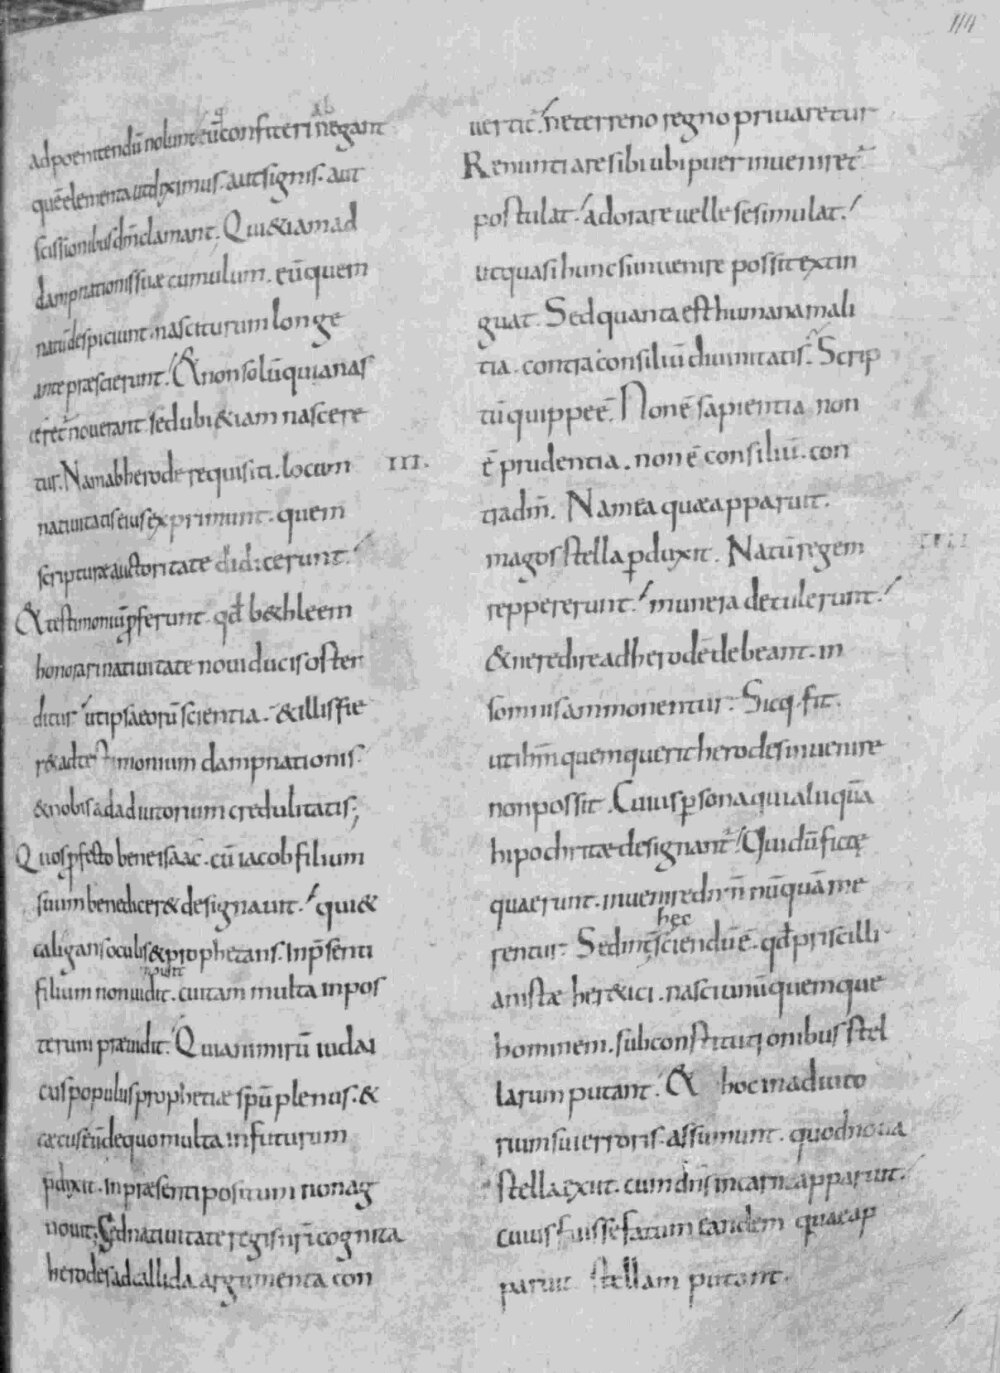 144
ad poenitendū nolunt. eūq confiteri ab negant
quē elementa ut diximus. aut signis. aut
scissionibus dn̄m clamant. Qui &iam ad
dampnationis suae cumulum. eū quem
natū despiciunt. nasciturum longe
ante praescierunt. & non solū quia nas
ceret̄ noverant. sed ubi &iam nascere
tur. Nam ab herode requisiti. locum
nativitatis eius exprimunt. quem
scripturae auctoritate didicerunt.
& testimoniū ꝓferunt. qđ b&hleem
honorari nativitate novi ducis osten
ditur. ut ipsa eorū scientia. & illis fie
r& ad testimonium dampnationis.
& nobis ad adiutorium credulitatis;
Quos ꝓfecto bene isaac. cū iacob filium
suum benedicer& designavit. qui &
caligans oculis & prophetans. In p̄senti
filium non vidit. cui tam multa in pos
terum praevidit. Quia nimirū iudai
cus populus prophetiae sp̄u plenus. &
caecus. eūde quo multa in futurum
p̄dixit. In praesenti positum non ag
novit; Sed nativitate regis nr̄i cognita
herodes ad callida argumenta con
III.
vertit̄. ne terreno regno privaretur
Renuntiare sibi ubi puer inveniret̄
postulat. adorare velle se simulat.
ut quasi hunc si invenire possit extin
guat. Sed quanta est humana mali
tia. contra consiliū divinitatis. Scrip
tū quippe ē. Non ē sapientia non
ē prudentia. non ē consiliū. con
tra dn̄m. Nam ea quae apparuit.
magos stella ꝑduxit. Natū regem
IIII
reppererunt. munera detulerunt.
& ne redire ad herodē debeant. in
somnis ammonentur. Sicq; fit.
ut ihm̄ quem querit herodes invenire
non possit. Cuius ꝑsona qui alii quā
hipochritae designant̄. Qui dū ficte
quaerunt. invenire dn̄m nūquā me
rentur. Sed int̄ hec sciendū ē. qđ priscilli
anistae her&ici. nasci unūquemque
hominem. sub constitutionibus stel
larum putant. & hoc in adiuto
rium sui erroris assumunt. quod nova
stella exiit. cum dn̄s in carne apparuit.
cuius fuisse fatum eandem quae ap
paruit stellam putant.